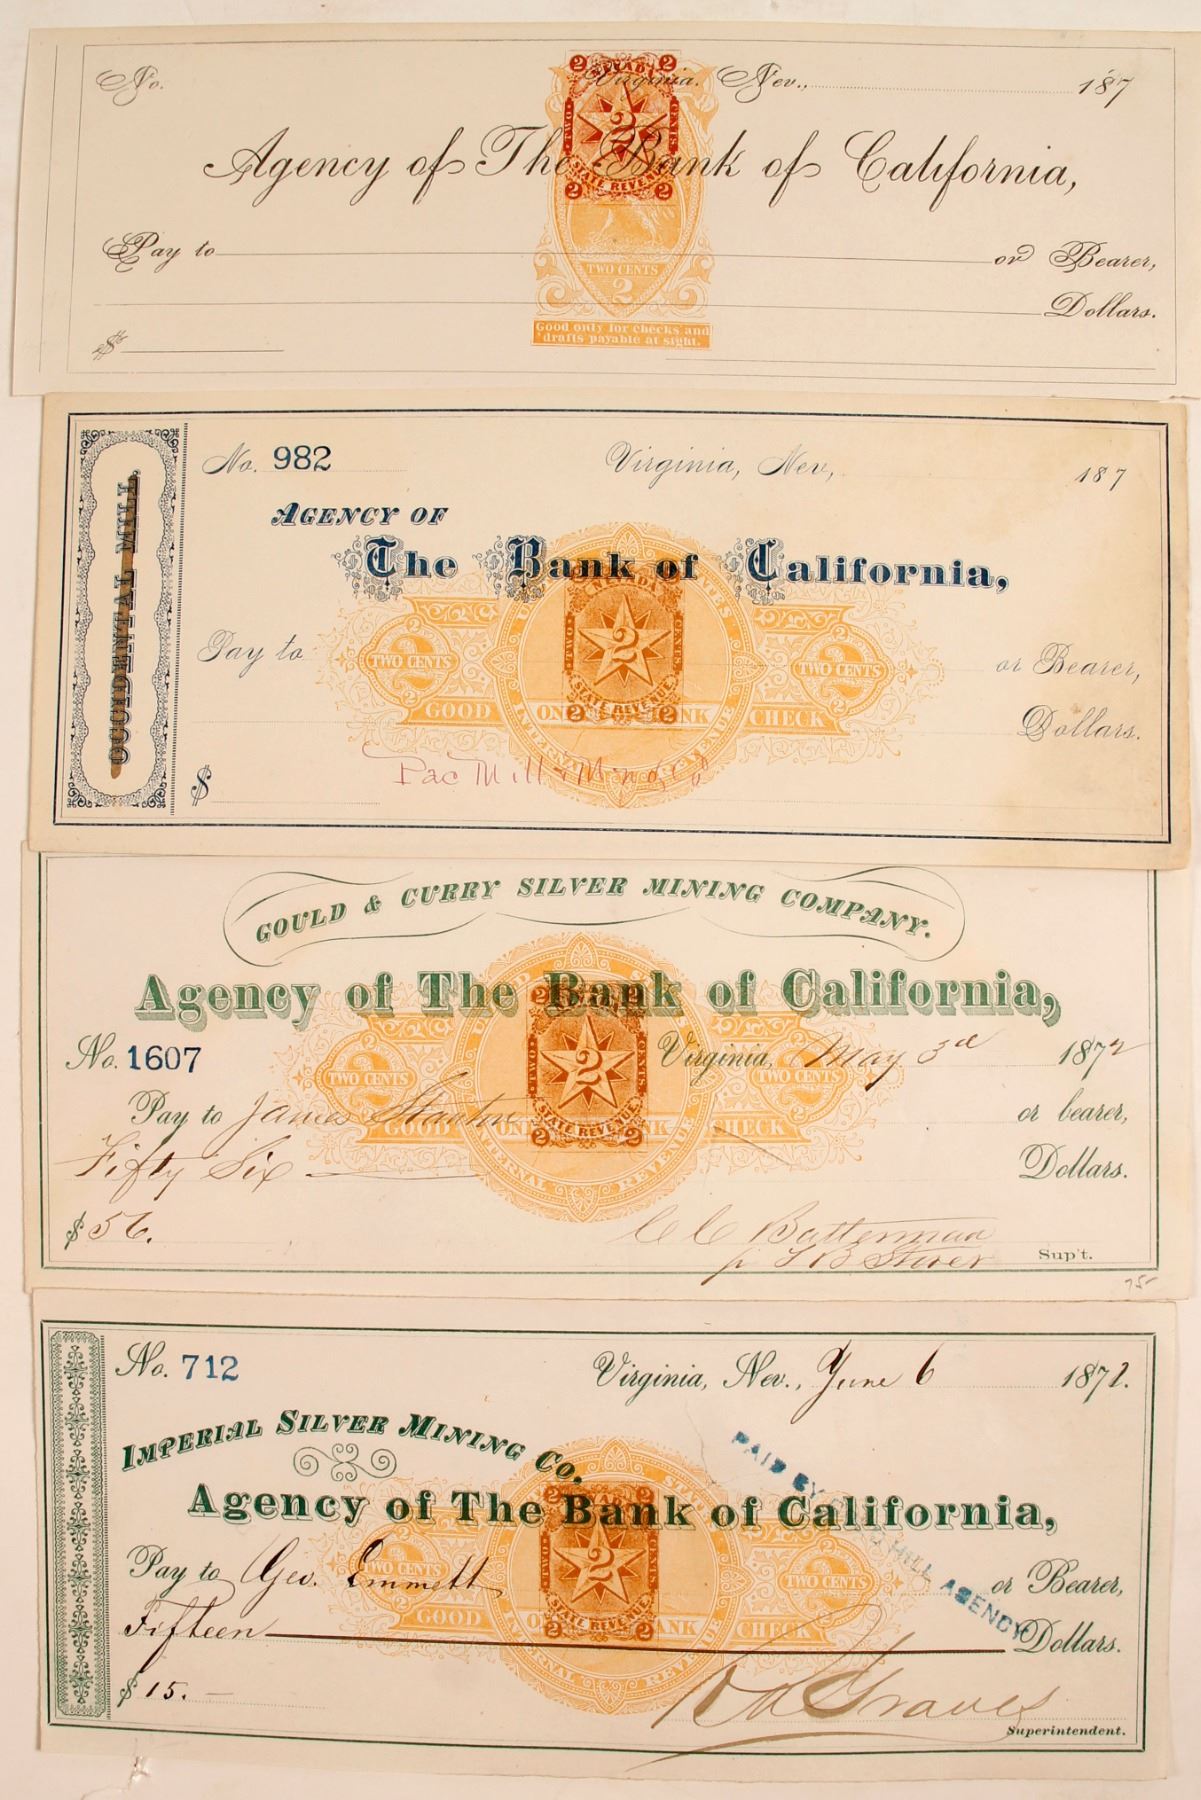 No. Virginia. Nev., 187
NEVADA
2 2
TWO 2 CENTS
STATE REVENUE
2 2
Agency of The Bank of California,
Pay to or Bearer,
TWO CENTS
2
Dollars.
$
Good only for checks and
drafts payable at sight.
OCCIDENTAL MILL.
No. 982 Virginia, Nev, 187
AGENCY OF
The Bank of California,
NEVADA
UNITED STATES
TWO 2 CENTS
STATE REVENUE
2 2
Pay to or Bearer,
2 TWO CENTS 2 TWO CENTS
GOOD ON BANK CHECK
INTERNAL REVENUE
Dollars.
Pac Mill & M
$
GOULD & CURRY SILVER MINING COMPANY.
Agency of The Bank of California,
No. 1607 Virginia, May 3d 1872
UNITED STATES
TWO 2 CENTS
STATE REVENUE
2 2
TWO CENTS TWO CENTS
Pay to James or bearer,
GOOD ON BANK CHECK
INTERNAL REVENUE
Fifty Six Dollars.
$ 56. C C Batterman
Sup't.
75-
No. 712 Virginia, Nev., June 6 1872.
IMPERIAL SILVER MINING Co.
PAID BY GOLD HILL AGENCY
Agency of The Bank of California,
TWO 2 CENTS
STATE REVENUE
2 2
TWO CENTS TWO CENTS
Pay to Geo. Emmett or Bearer,
GOOD ON BANK CHECK
INTERNAL REVENUE
Fifteen Dollars.
$ 15. - Graves
Superintendent.